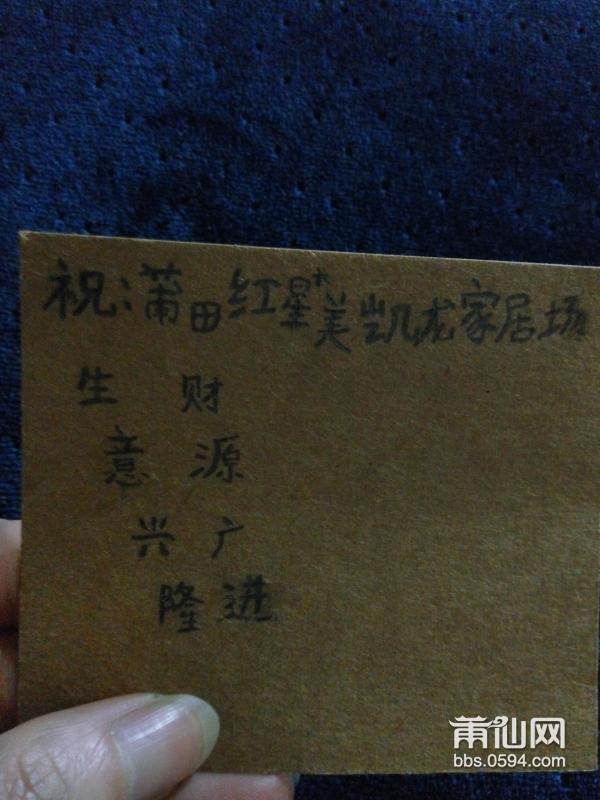 祝:莆田红星大美凯龙家居场
生 财
意 源
兴 广
隆 进
莆仙网
bbs.0594.com